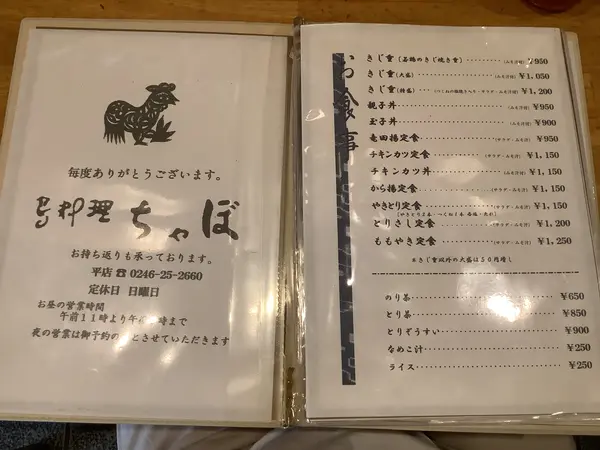 毎度ありがとうございます。
鳥料理 ちゃぼ
お持ち返りも承っております。
平店 ☎ 0246-25-2660
定休日 日曜日
お昼の営業時間
午前11時より午後 時まで
夜の営業は御予約の とさせていただきます
お食事
きじ重(若鶏のきじ焼き重)・・・・・(みそ汁付) ¥950
きじ重(大盛)・・・・・(みそ汁付) ¥1,050
きじ重(特盛)・・・・・ サラダ・みそ汁付) ¥1,200
親子丼・・・・・(みそ汁付) ¥950
玉子丼・・・・・(みそ汁付) ¥900
竜田揚定食・・・・・(サラダ・みそ汁) ¥950
チキンカツ定食・・・・・(サラダ・みそ汁) ¥1,150
チキンカツ丼・・・・・(みそ汁付) ¥1,150
から揚定食・・・・・(サラダ・みそ汁) ¥1,150
やきとり定食・・・・・(サラダ・みそ汁) ¥1,150
(やきとり2本・つくね1本
とりさし定食・・・・・(サラダ・みそ汁) ¥1,200
ももやき定食・・・・・(サラダ・みそ汁) ¥1,250
※きじ重以外の大盛は50円増し
のり茶・・・・・¥650
とり茶・・・・・¥850
とりぞうすい・・・・・¥900
なめこ汁・・・・・¥250
ライス・・・・・¥250